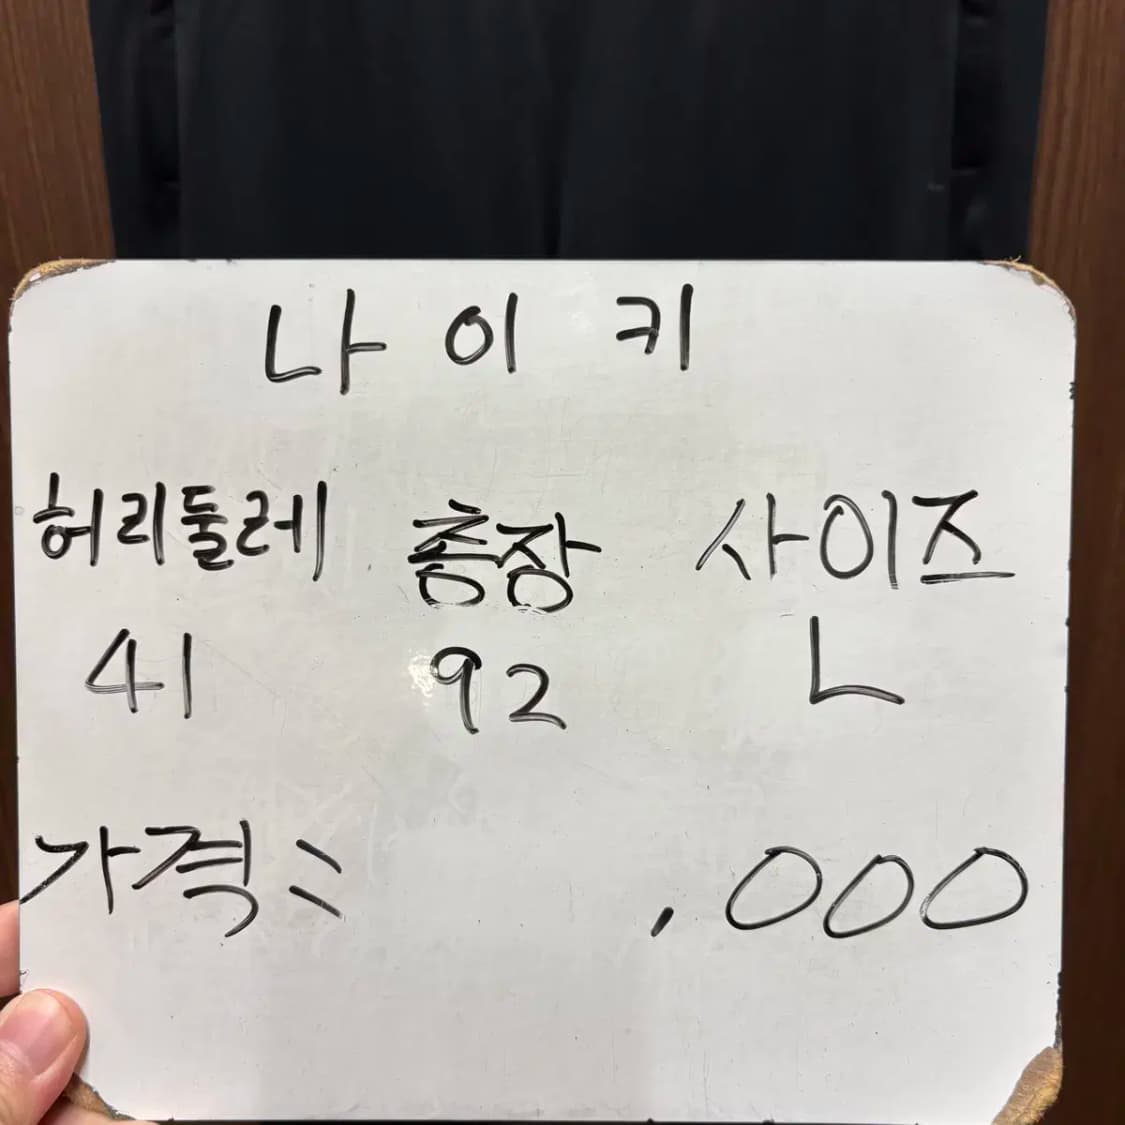 나이키
허리둘레 총장 사이즈
41 92 L
가격: .000